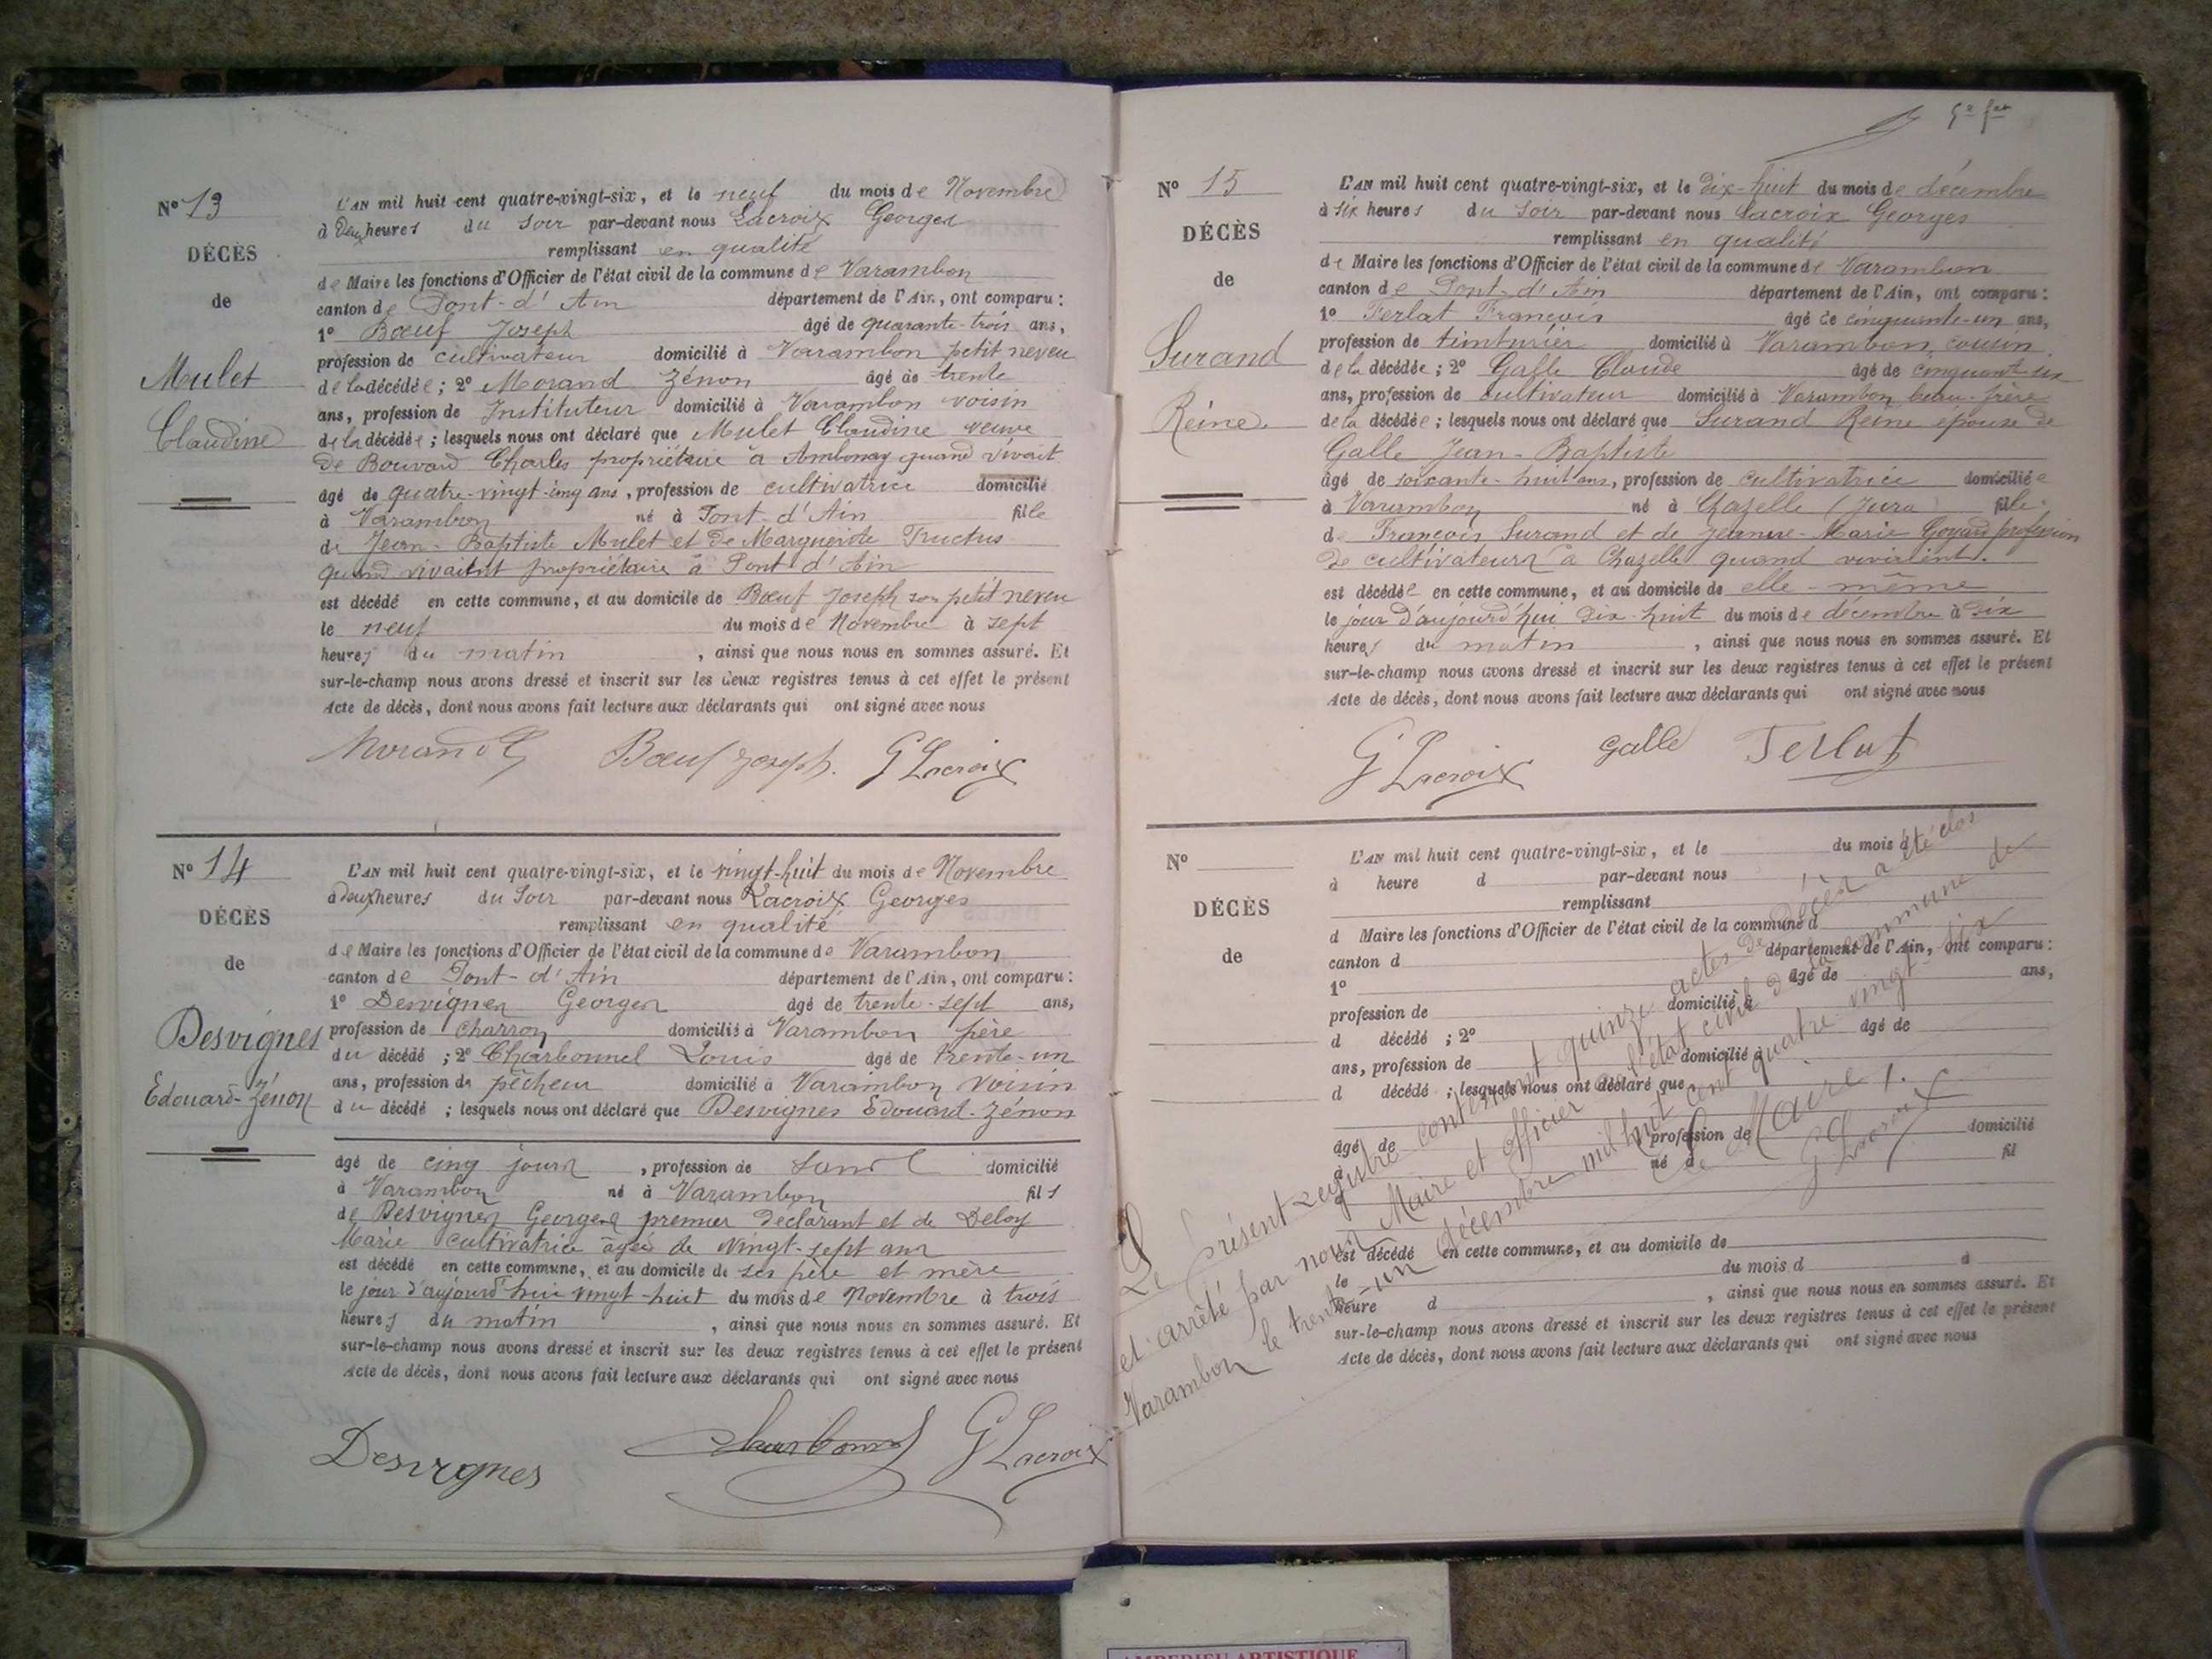 Nº 13
DÉCÈS
de
Mulet
Claudine
L'AN mil huit cent quatre-vingt-six, et le neuf du mois de Novembre
à deux heures du soir par-devant nous Lacroix Georges
remplissant en qualité
de Maire les fonctions d'Officier de l'état civil de la commune de Varambon
canton de Pont-d'Ain département de l'Ain, ont comparu :
1º Bœuf Joseph âgé de quarante-trois ans,
profession de cultivateur domicilié à Varambon petit neveu
de la décédée ; 2º Morand Zénon âgé de trente
ans, profession de Instituteur domicilié à Varambon voisin
de la décédée ; lesquels nous ont déclaré que Mulet Claudine veuve
de Bouvard Charles propriétaire à Ambonay quand vivait
âgé de quatre-vingt-cinq ans, profession de cultivatrice domicilié
à Varambon né à Pont-d'Ain fille
de Jean-Baptiste Mulet et de Marguerite Tructus
quand vivaient propriétaire à Pont d'Ain
est décédé en cette commune, et au domicile de Bœuf Joseph son petit neveu
le neuf du mois de Novembre à sept
heures du matin , ainsi que nous nous en sommes assuré. Et
sur-le-champ nous avons dressé et inscrit sur les deux registres tenus à cet effet le présent
Acte de décès, dont nous avons fait lecture aux déclarants qui ont signé avec nous
Morand Z Bœuf Joseph. G Lacroix
Nº 14
DÉCÈS
de
Desvignes
Edouard-Zénon
L'AN mil huit cent quatre-vingt-six, et le vingt-huit du mois de Novembre
à deux heures du soir par-devant nous Lacroix Georges
remplissant en qualité
de Maire les fonctions d'Officier de l'état civil de la commune de Varambon
canton de Pont-d'Ain département de l'Ain, ont comparu :
1º Desvignes Georges âgé de trente-sept ans,
profession de Charron domicilié à Varambon père
du décédé ; 2º Charbonnel Louis âgé de trente-un
ans, profession de pêcheur domicilié à Varambon voisin
du décédé ; lesquels nous ont déclaré que Desvignes Edouard-Zénon
âgé de cinq jours , profession de sans domicilié
à Varambon né à Varambon fils
de Desvignes Georges premier déclarant et de Deloy
Marie cultivatrice âgée de vingt-sept ans
est décédé en cette commune, et au domicile de ses père et mère
le jour d'aujourd'hui vingt-huit du mois de Novembre à trois
heures du matin , ainsi que nous nous en sommes assuré. Et
sur-le-champ nous avons dressé et inscrit sur les deux registres tenus à cet effet le présent
Acte de décès, dont nous avons fait lecture aux déclarants qui ont signé avec nous
Desvignes Charbonnel G Lacroix
Nº 15
DÉCÈS
de
Surand
Reine
L'AN mil huit cent quatre-vingt-six, et le dix-huit du mois de décembre
à six heures du soir par-devant nous Lacroix Georges
remplissant en qualité
de Maire les fonctions d'Officier de l'état civil de la commune de Varambon
canton de Pont-d'Ain département de l'Ain, ont comparu :
1º Ferlat François âgé de cinquante-un ans,
profession de tinturier domicilié à Varambon, cousin
de la décédée ; 2º Galle Claude âgé de cinquante-six
ans, profession de cultivateur domicilié à Varambon beau-frère
de la décédée ; lesquels nous ont déclaré que Surand Reine épouse de
Galle Jean-Baptiste
âgé de soixante-huit ans, profession de cultivatrice domiciliée
à Varambon né à Chazelle (Jura fille
de François Surand et de Jeanne-Marie Goyard profession
de cultivateurs à Chazelle quand vivaient.
est décédée en cette commune, et au domicile de elle-même
le jour d'aujourd'hui dix-huit du mois de décembre à six
heures du matin , ainsi que nous nous en sommes assuré. Et
sur-le-champ nous avons dressé et inscrit sur les deux registres tenus à cet effet le présent
Acte de décès, dont nous avons fait lecture aux déclarants qui ont signé avec nous
G Lacroix Galle Ferlat
Nº
DÉCÈS
de
L'AN mil huit cent quatre-vingt-six, et le du mois d
à heure d par-devant nous
remplissant
d Maire les fonctions d'Officier de l'état civil de la commune d
canton d département de l'Ain, ont comparu :
1º âgé de ans,
profession de domicilié à
d décédé ; 2º âgé de
ans, profession de domicilié à
d décédé ; lesquels nous ont déclaré que
âgé de profession de domicilié
à né à fil
d
est décédé en cette commune, et au domicile de
le du mois d à
heure d , ainsi que nous nous en sommes assuré. Et
sur-le-champ nous avons dressé et inscrit sur les deux registres tenus à cet effet le présent
Acte de décès, dont nous avons fait lecture aux déclarants qui ont signé avec nous
Le présent registre contenant quinze actes de décès a été clos
et arrêté par nous Maire et officier de l'état civil de la commune de
Varambon le trente-un décembre mil huit cent quatre-vingt-six
Le Maire
G Lacroix
AMBERIEU ARTISTIQUE